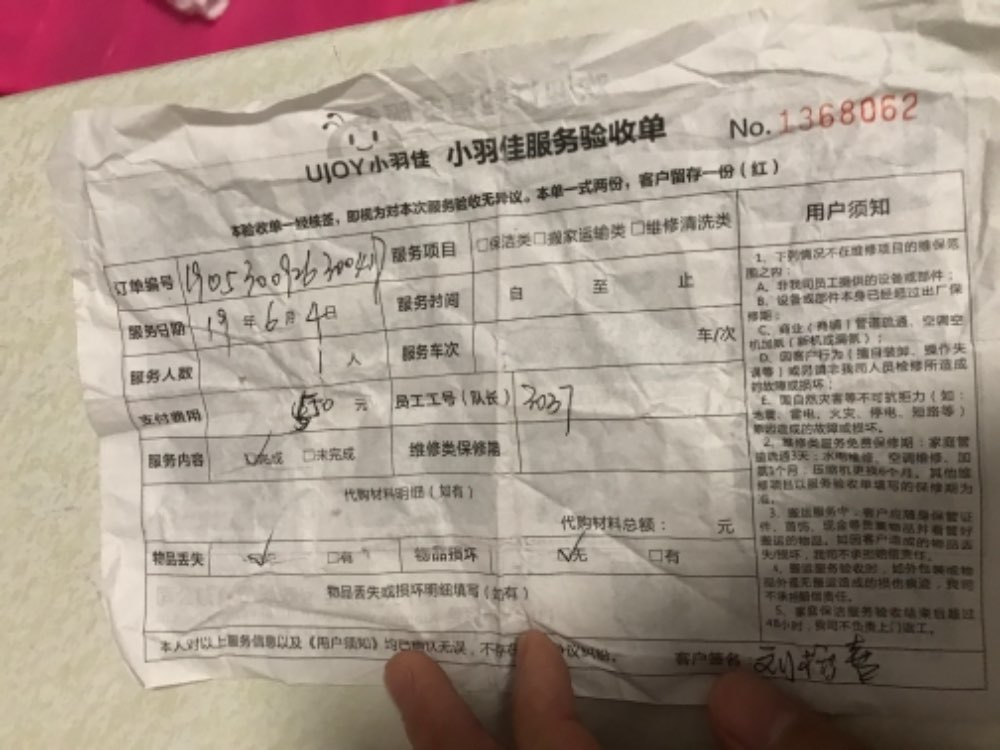 UJOY小羽佳 小羽佳服务验收单
No.1368062
本验收单一经核签，即视为对本次服务验收无异议。本单一式两份，客户留存一份（红）
订单编号
服务项目 □保洁类□搬家运输类□维修清洗类
服务日期 19年6月4日
服务时间 自 至 止
服务人数 1人
服务车次 车/次
支付费用 550元
员工工号（队长） 3037
服务内容 ☑完成 □未完成
维修类保修期
代购材料明细（如有）
代购材料总额： 元
物品丢失 □有
物品损坏 ☑无 □有
物品丢失或损坏明细填写（如有）
本人对以上服务信息以及《用户须知》均已确认无误，不存在 协议纠纷。
客户签名：
用户须知
1、下列情况不在维修项目的维保范
围之内：
A、非我司员工提供的设备或部件；
B、设备或部件本身已经超过出厂保
修期；
C、商业（商铺）管道疏通、空调空
机加氟（新机或漏氟）；
D、因客户行为（擅自装卸、操作失
误等）或另请非我司人员检修所造成
的故障或损坏；
E、因自然灾害等不可抗拒力（如：
地震、雷电、火灾、停电、短路等）
原因造成的故障或损坏。
2、维修类服务免费保修期：家庭管
道疏通3天；水电维修、空调维修、加
氟1个月，压缩机更换6个月。其他维
修项目以服务验收单填写的保修期为
准。
3、搬运服务中：客户应随身保管证
件、首饰、现金等贵重物品并看管好
搬运的物品。如因客户造成的物品丢
失/损坏，我司不承担赔偿责任。
4、搬运服务验收时，如外包装或物
品外观无搬运造成的损伤痕迹，我司
不承担赔偿责任。
5、家庭保洁服务验收结束后超过
48小时，我司不负责上门返工。